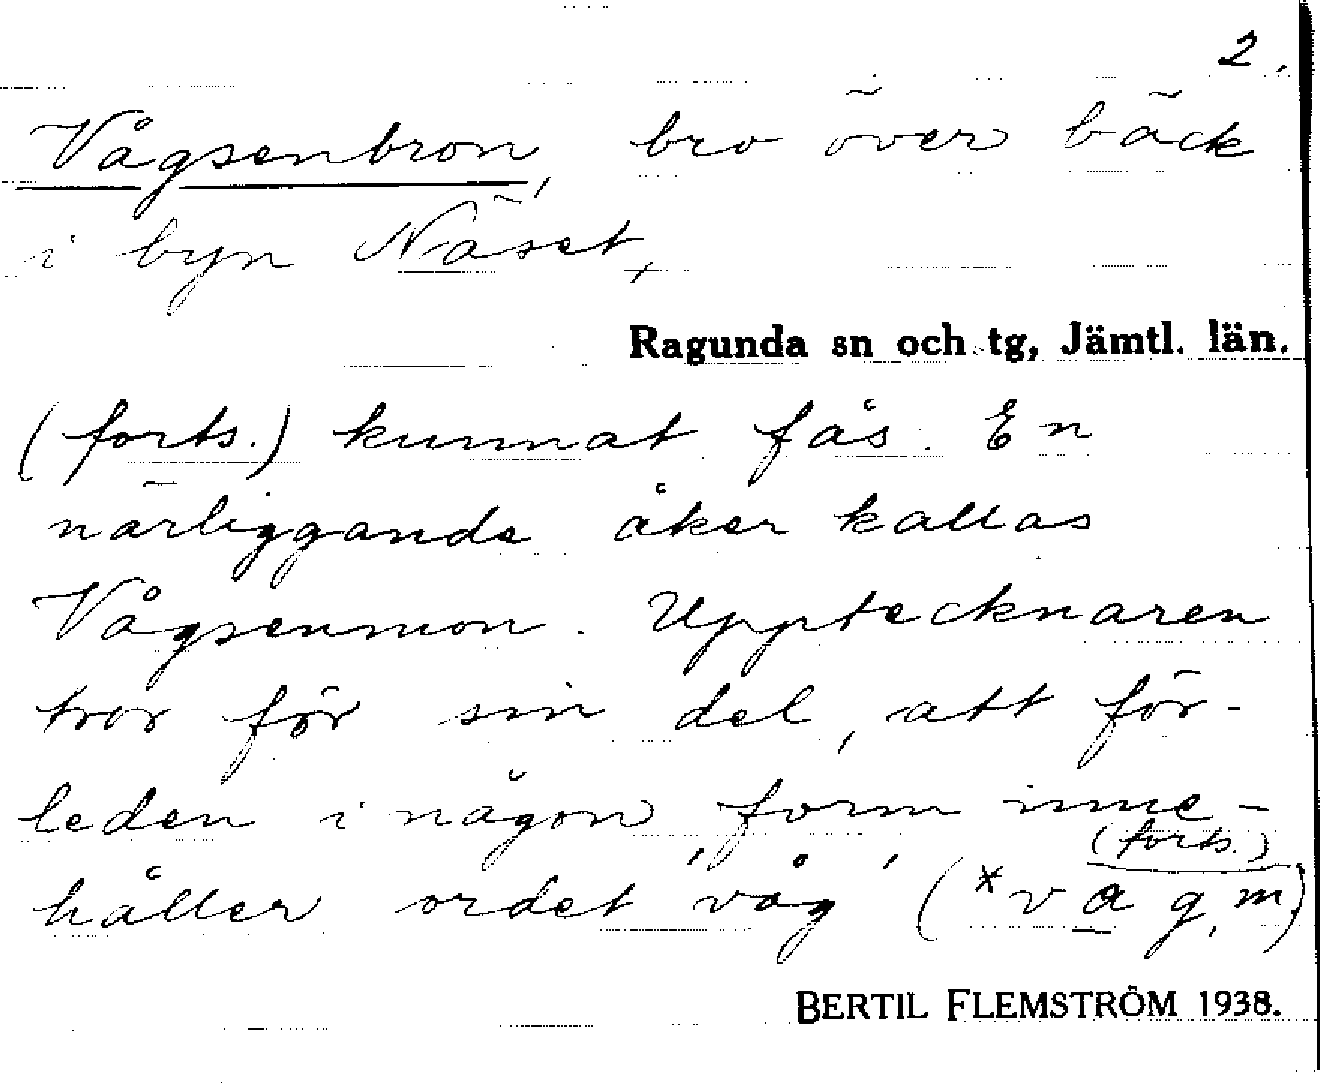 2.
Vågsenbron, bro över bäck
i byn Näset,
Ragunda sn och tg, Jämtl. län.
(forts.) kunnat fås. En
närliggande åker kallas
Vågsenmon. Upptecknaren
tror för sin del, att för-
leden i någon form inne-
(forts.)
håller ordet 'våg' (*vag, m)
BERTIL FLEMSTRÖM 1938.